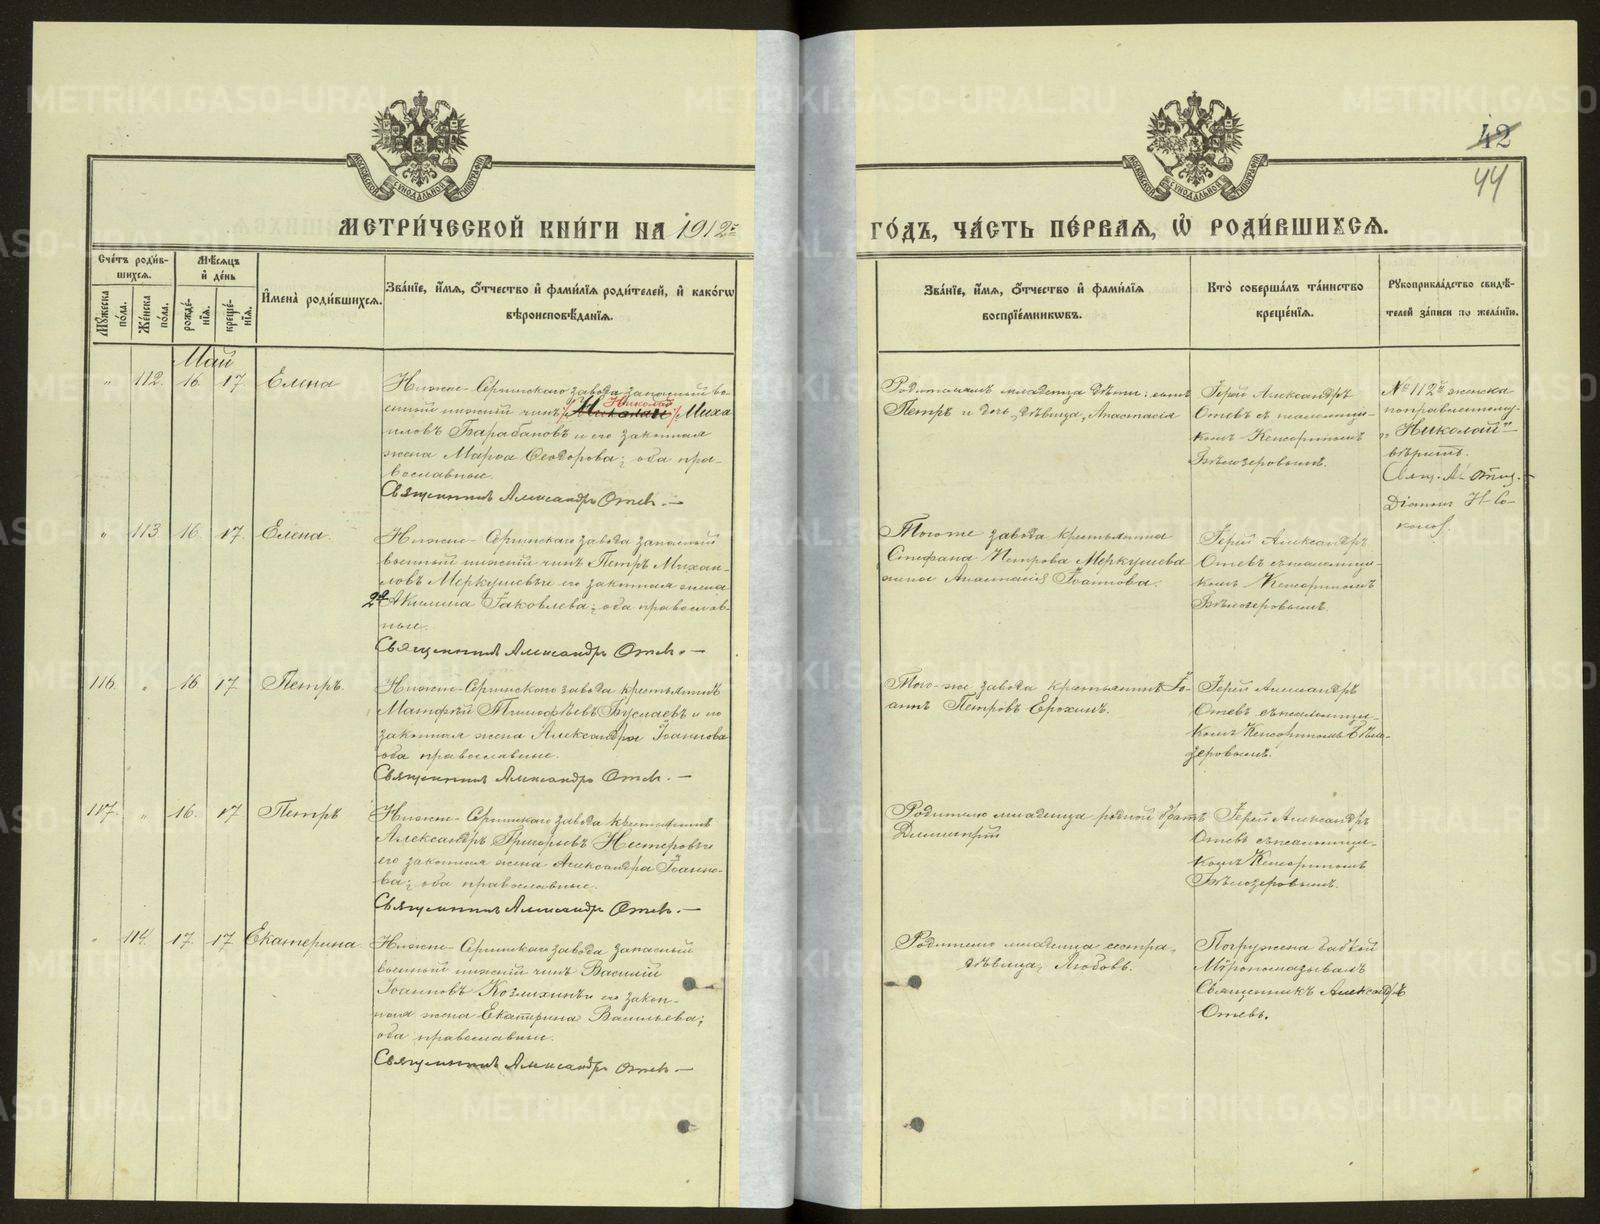 42
44
МОСКОВСКОЙ СѴНОДАЛЬНОЙ ТИПОГРАФІИ
МОСКОВСКОЙ СѴНОДАЛЬНОЙ ТИПОГРАФІИ
МЕТРИ́ЧЕСКОЙ КНИ́ГИ НА 1912й
ГО́ДЪ, ЧА́СТЬ ПЕ́РВАЯ, Ѡ҆ РОДИ́ВШИХСѦ.
Сче́тъ роди́в-
шихсѧ.
Мꙋжска по́ла.
Же́нска по́ла.
Мѣ́сѧцъ
и҆ де́нь
рожде́-
нїѧ.
креще́-
нїѧ.
И҆мена̀ роди́вшихсѧ.
Зва́нїе, и҆́мѧ, ѻ҆́тчество и҆ фами́лїѧ роди́телей, и҆ како́гѡ
вѣроисповѣ́данїѧ.
Зва́нїе, и҆́мѧ, ѻ҆́тчество и҆ фами́лїѧ
воспрїе́мникѡвъ.
Кто̀ соверша́лъ та́инство
креще́нїѧ.
Рꙋкоприкла́дство свидѣ́-
телей за́писи по жела́нїю.
Май
" 112. 16. 17. Елена
Нижне-Сергинскаго завода запасный во-
енный нижній чинъ Николай Миха
иловъ Барабановъ и его законная
жена Марѳа Ѳеодорова; оба пра-
вославные.
Священникъ Александръ Отевъ. —
Родителямъ младенца дѣти: сынъ
Петръ и дочь, дѣвица, Анастасія
Іерей Александръ
Отевъ съ псаломщи-
комъ Кенсориномъ
Бѣлозеровымъ.
№ 112й женска
поправленному
"Николай"
вѣрить.
Свящ. А. Отев. —
Діаконъ Н. Со-
колов.
" 113. 16. 17. Елена.
Нижне-Сергинскаго завода запасный
военный нижній чинъ Петръ Михаи-
ловъ Меркушевъ и его законная жена
2я Акилина Іаковлева; оба православ-
ные.
Священникъ Александръ Отевъ. —
Того же завода крестьянина
Стефана Петрова Меркушева
жена Анастасія Іоаннова.
Іерей Александръ
Отевъ съ псаломщи-
комъ Кенсориномъ
Бѣлозеровымъ.
116. " 16. 17. Петръ.
Нижне-Сергинскаго завода крестьянинъ
Матѳей Тимоѳеевъ Буслаевъ и его
законная жена Александра Іоаннова
оба православные.
Священникъ Александръ Отевъ. —
Того-же завода крестьянинъ Іо-
аннъ Петровъ Ерохинъ.
Іерей Александръ
Отевъ съ псаломщи-
комъ Кенсориномъ Бѣло-
зеровымъ.
117. " 16. 17. Петръ
Нижне-Сергинскаго завода крестьянинъ
Александръ Григорьевъ Нестеровъ и
его законная жена Александра Іоанно-
ва; оба православные.
Священникъ Александръ Отевъ. —
Родителю младенца родной братъ
Димитрій
Іерей Александръ
Отевъ съ псаломщи-
комъ Кенсориномъ
Бѣлозеровымъ.
" 114. 17. 17 Екатерина.
Нижне-Сергинскаго завода запасный
военный нижній чинъ Василій
Іоанновъ Козлихинъ и его закон-
ная жена Екатерина Васильева;
оба православные.
Священникъ Александръ Отевъ —
Родителю младенца сестра,
дѣвица, Любовь.
Погружена бабкой
Мѵропомазывалъ
Священникъ Александръ
Отевъ.